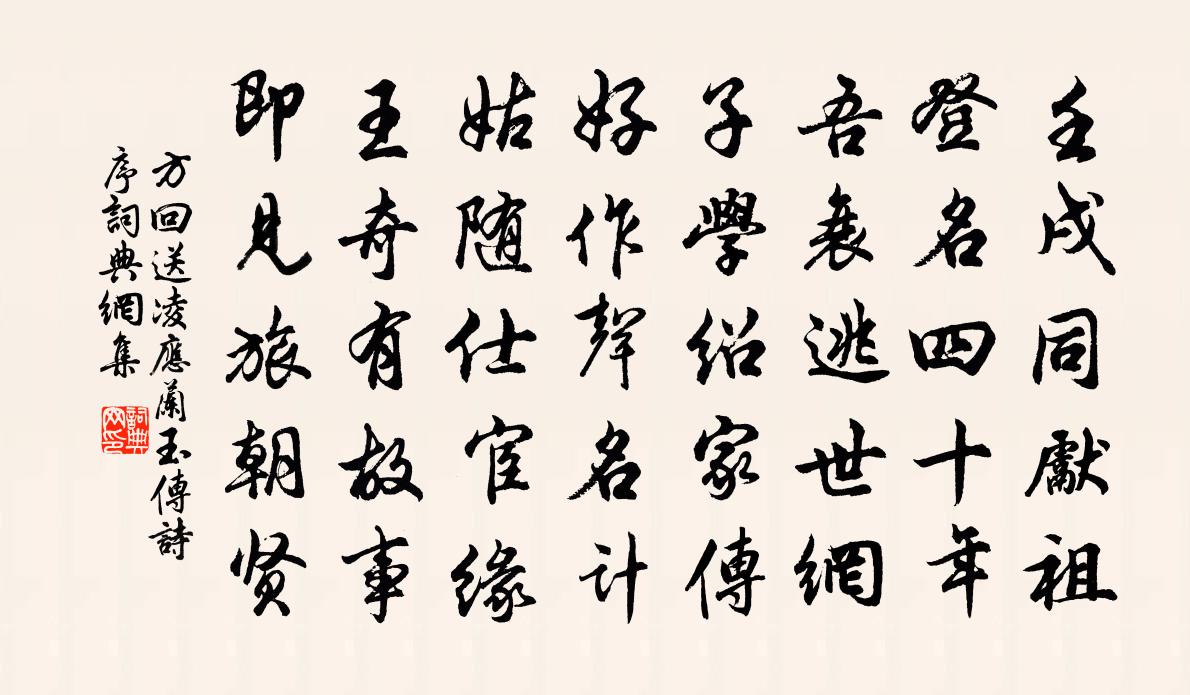 壬戌同獻祖
登名四十年
吾衰逃世網
子學紹家傳
好作聲名計
姑随仕宦緣
王奇有故事
即見旅朝贤
方回送凌應蘭玉傳詩
序詞典網集
詞典网印